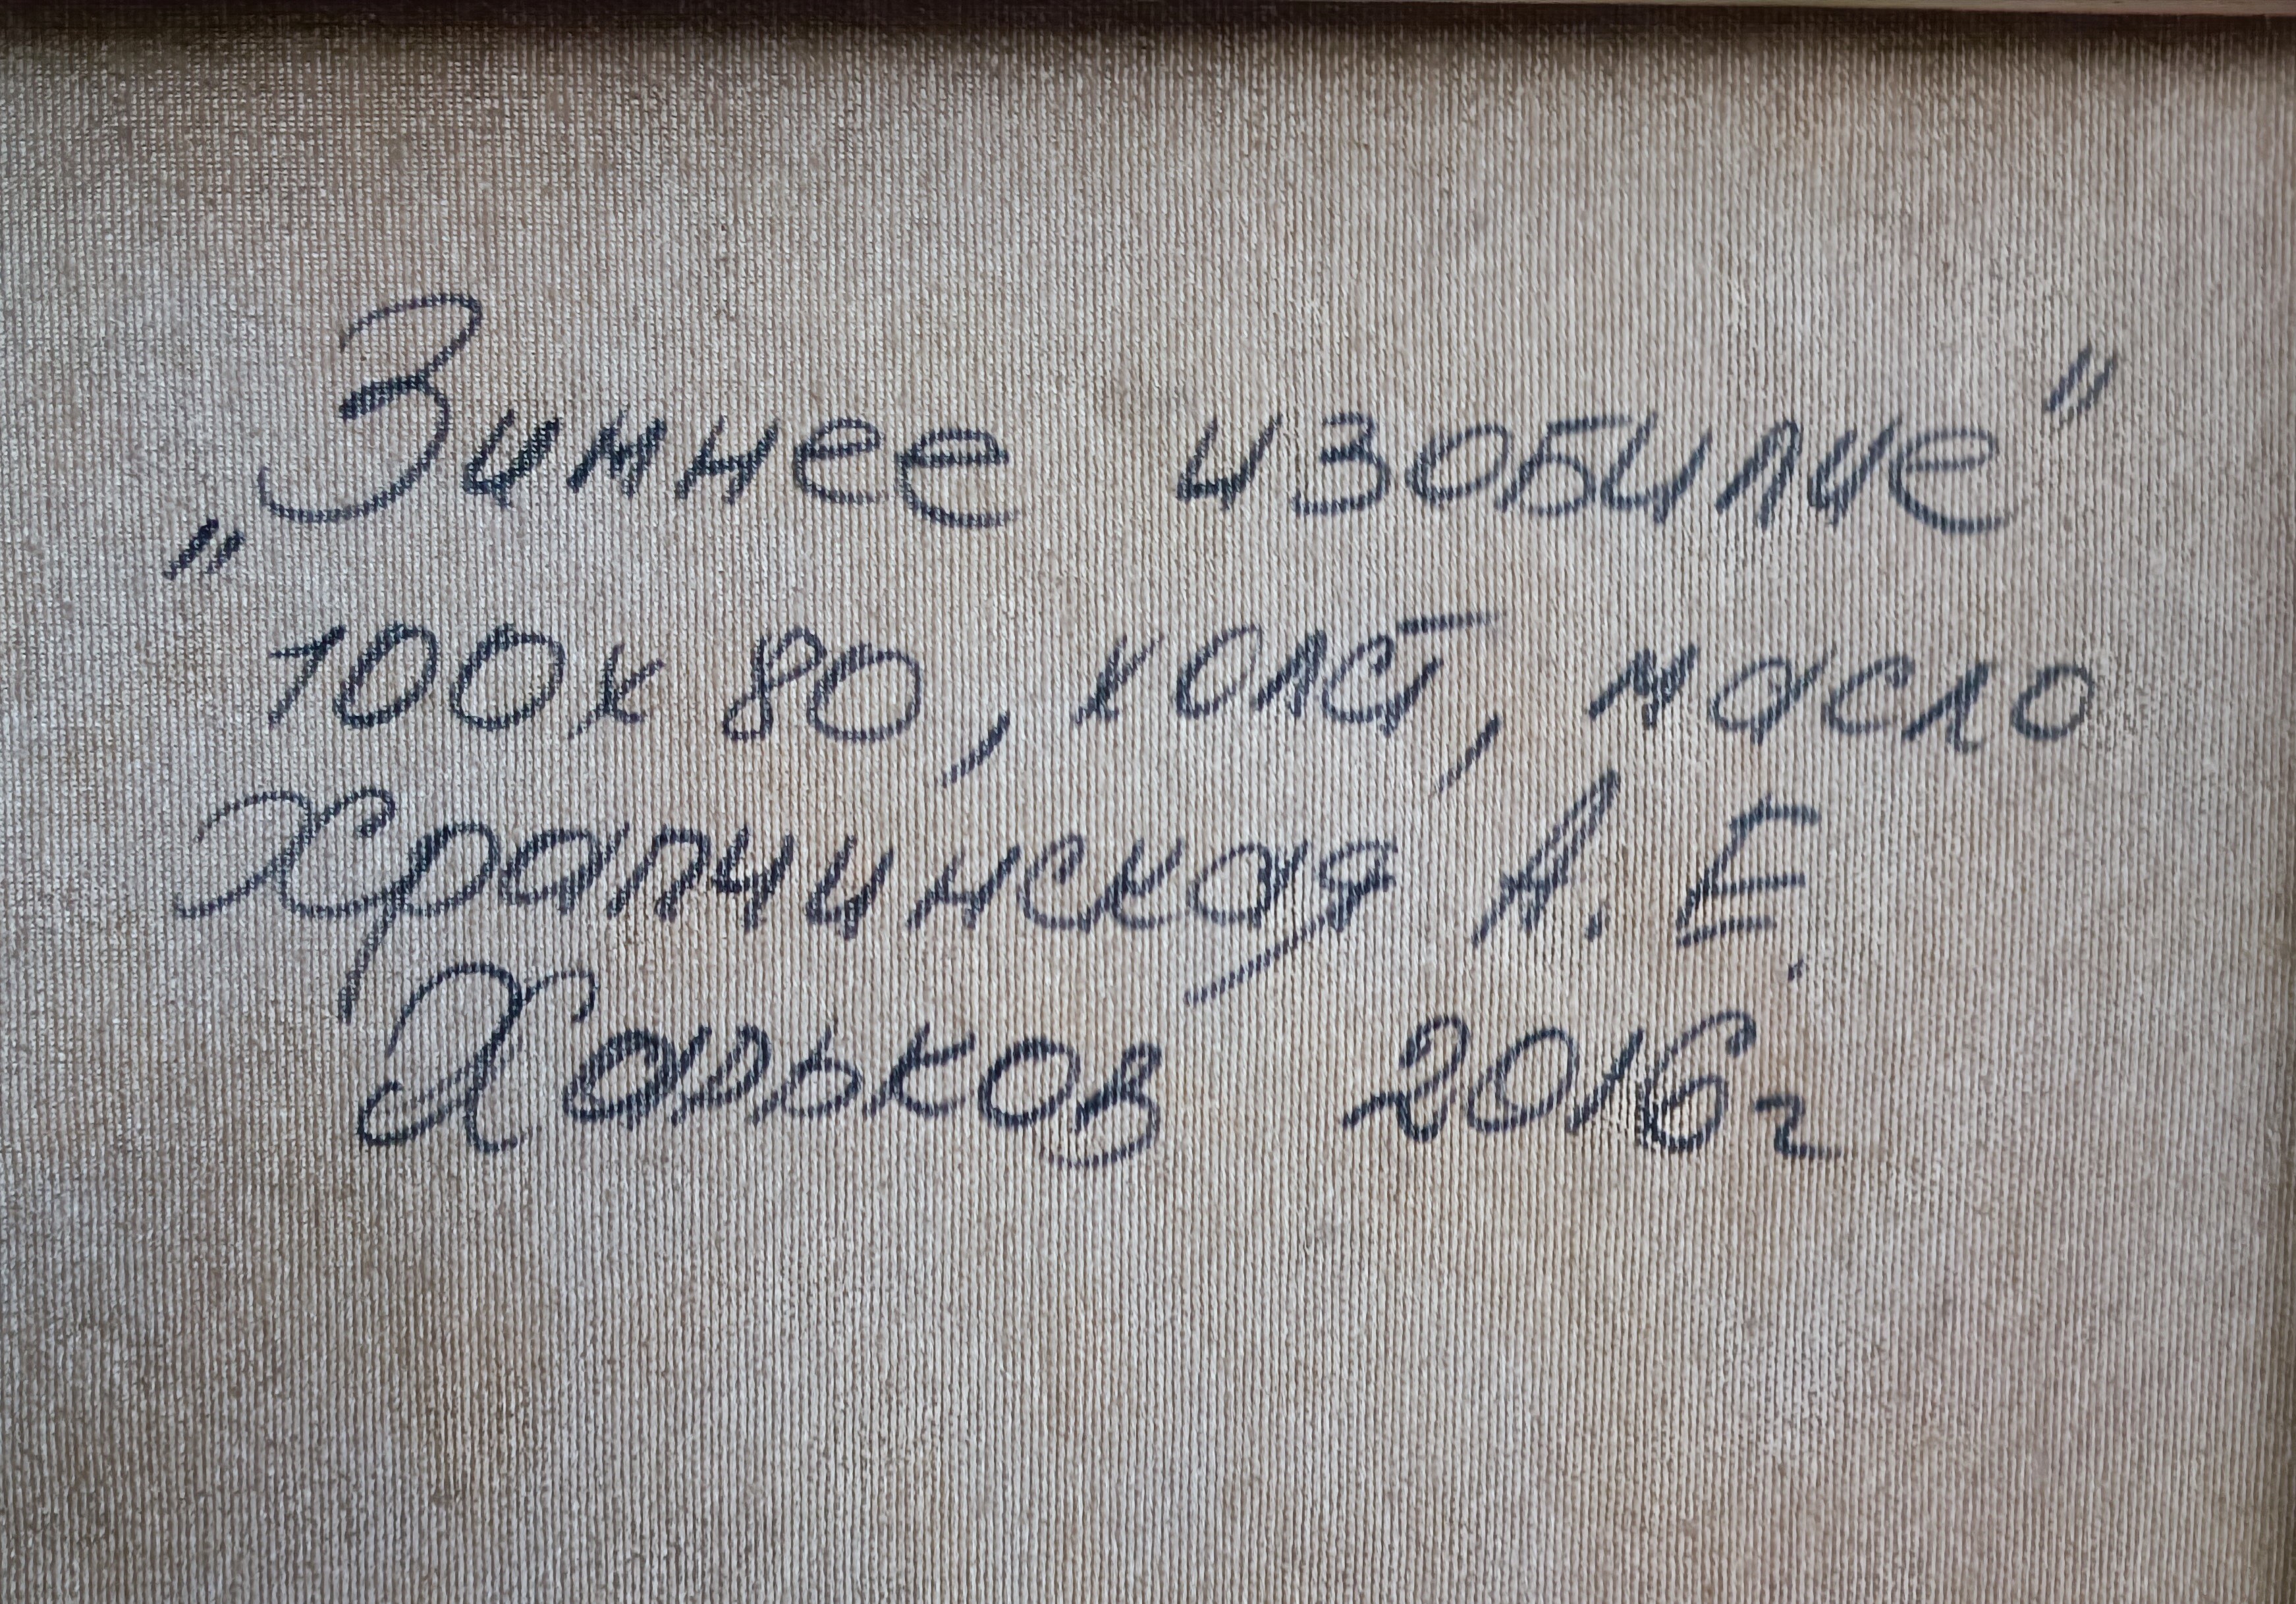 „Зимнее изобилие"
100х80, холст, масло
Храпчинская А. Е.
Харьков 2016г